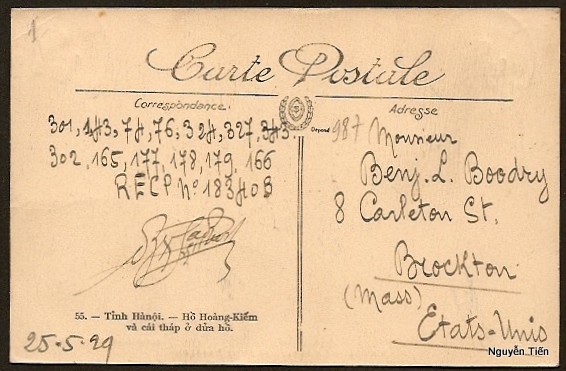 1
Carte Postale
Correspondance.
Adresse
301, 143, 74, 76, 324, 327, 343
302, 165, 177, 178, 179, 166
RECP Nº 18340B
Déposé
987 Monsieur
Benj. L. Boodry
8 Carleton St.
Brockton
(Mass)
Etats-Unis
55. — Tỉnh Hànội. — Hồ Hoàng-Kiếm
và cái tháp ở dửa hồ.
25-5-29
Nguyễn Tiến